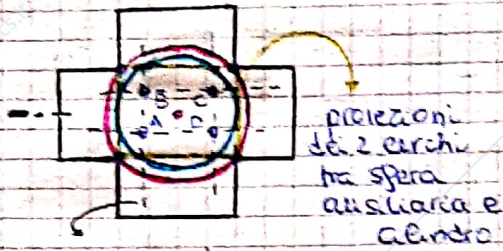 B C
A D
proiezioni
dei 2 cerchi
tra sfera
ausiliaria e
cilindro